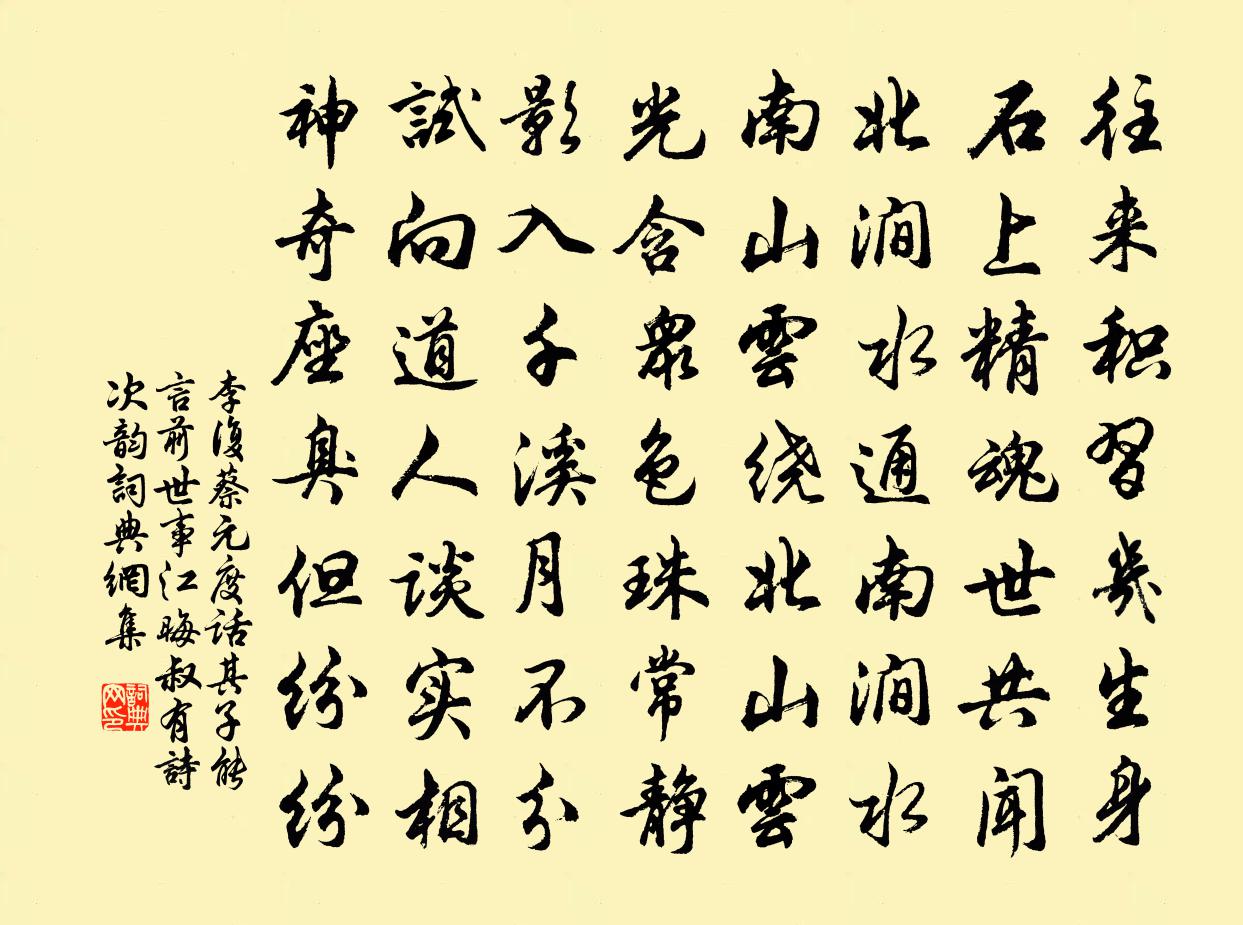 往来积習幾生身
石上精魂世共闻
北涧水通南涧水
南山雲绕北山雲
光含衆色珠常静
影入千溪月不分
試向道人谈实相
神奇座臭但纷纷
李復蔡元度話其子能
言前世事江晦叔有詩
次韵詞典網集
詞典网印